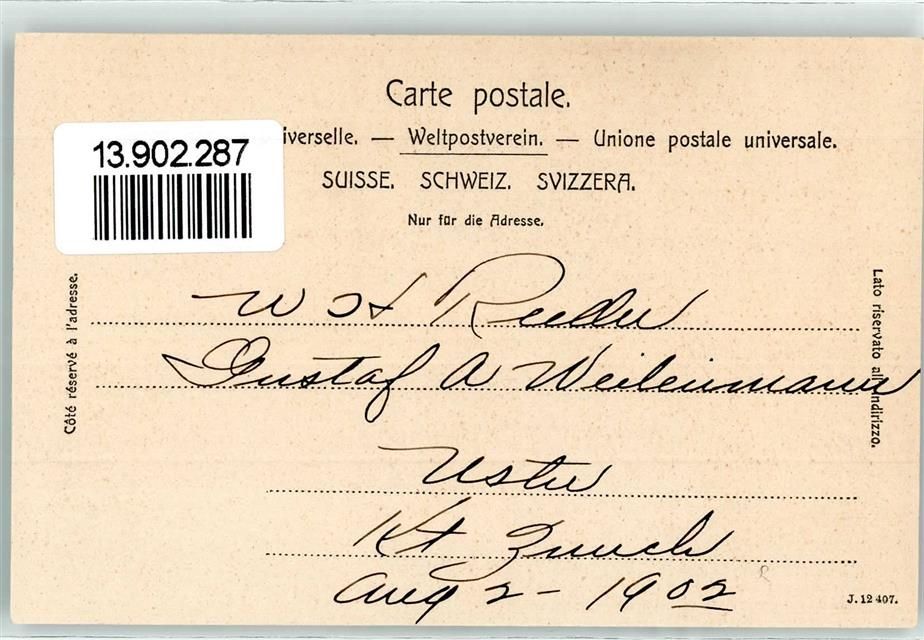 Carte postale.
13.902.287
iverselle. — Weltpostverein. — Unione postale universale.
SUISSE. SCHWEIZ. SVIZZERA.
Nur für die Adresse.
Côté réservé à l'adresse.
Lato riservato all'indirizzo.
W H Reeder
Gustaf A Weilenmann
Uster
Kt Zurich
Aug 2 - 1902
J. 12 407.